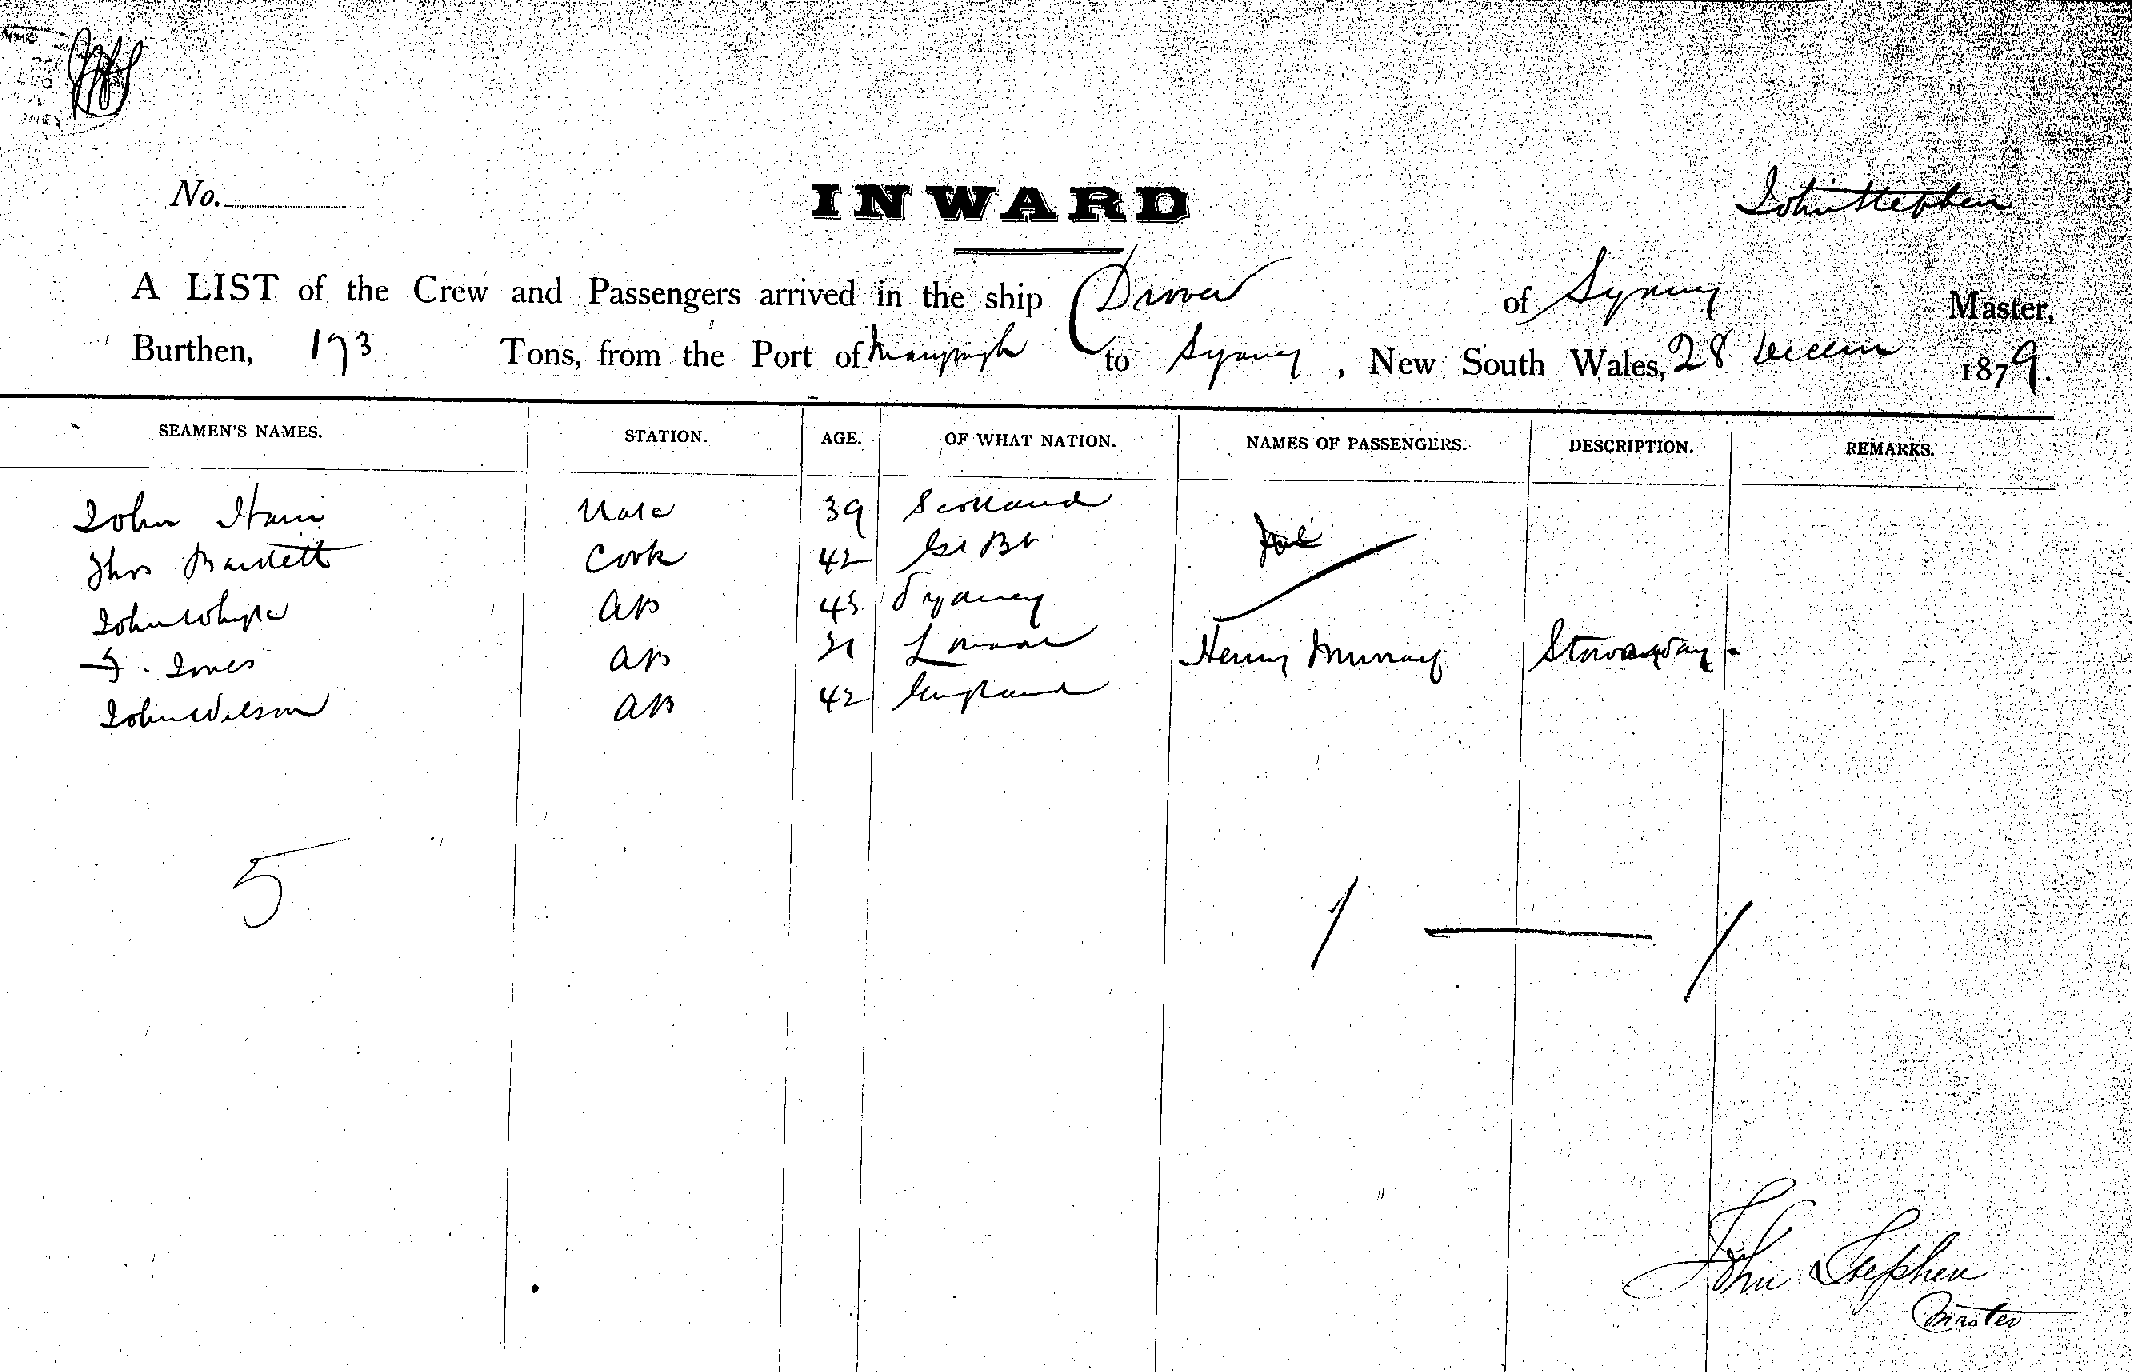 No.
INWARD
John Stephen
A LIST of the Crew and Passengers arrived in the ship Drover of Sydney Master,
Burthen, 193 Tons, from the Port of to Sydney, New South Wales, 28 1879.
SEAMEN'S NAMES. STATION. AGE. OF WHAT NATION. NAMES OF PASSENGERS. DESCRIPTION. REMARKS.
John Mate 39 Scotland
Thos Bartlett Cook 42 Gt Br
John Whyte AB 45 Sydney
Jones AB 31 London Henry Murray Stowaway
John Wilson AB 42 England
5 1 — 1
John Stephen
Master